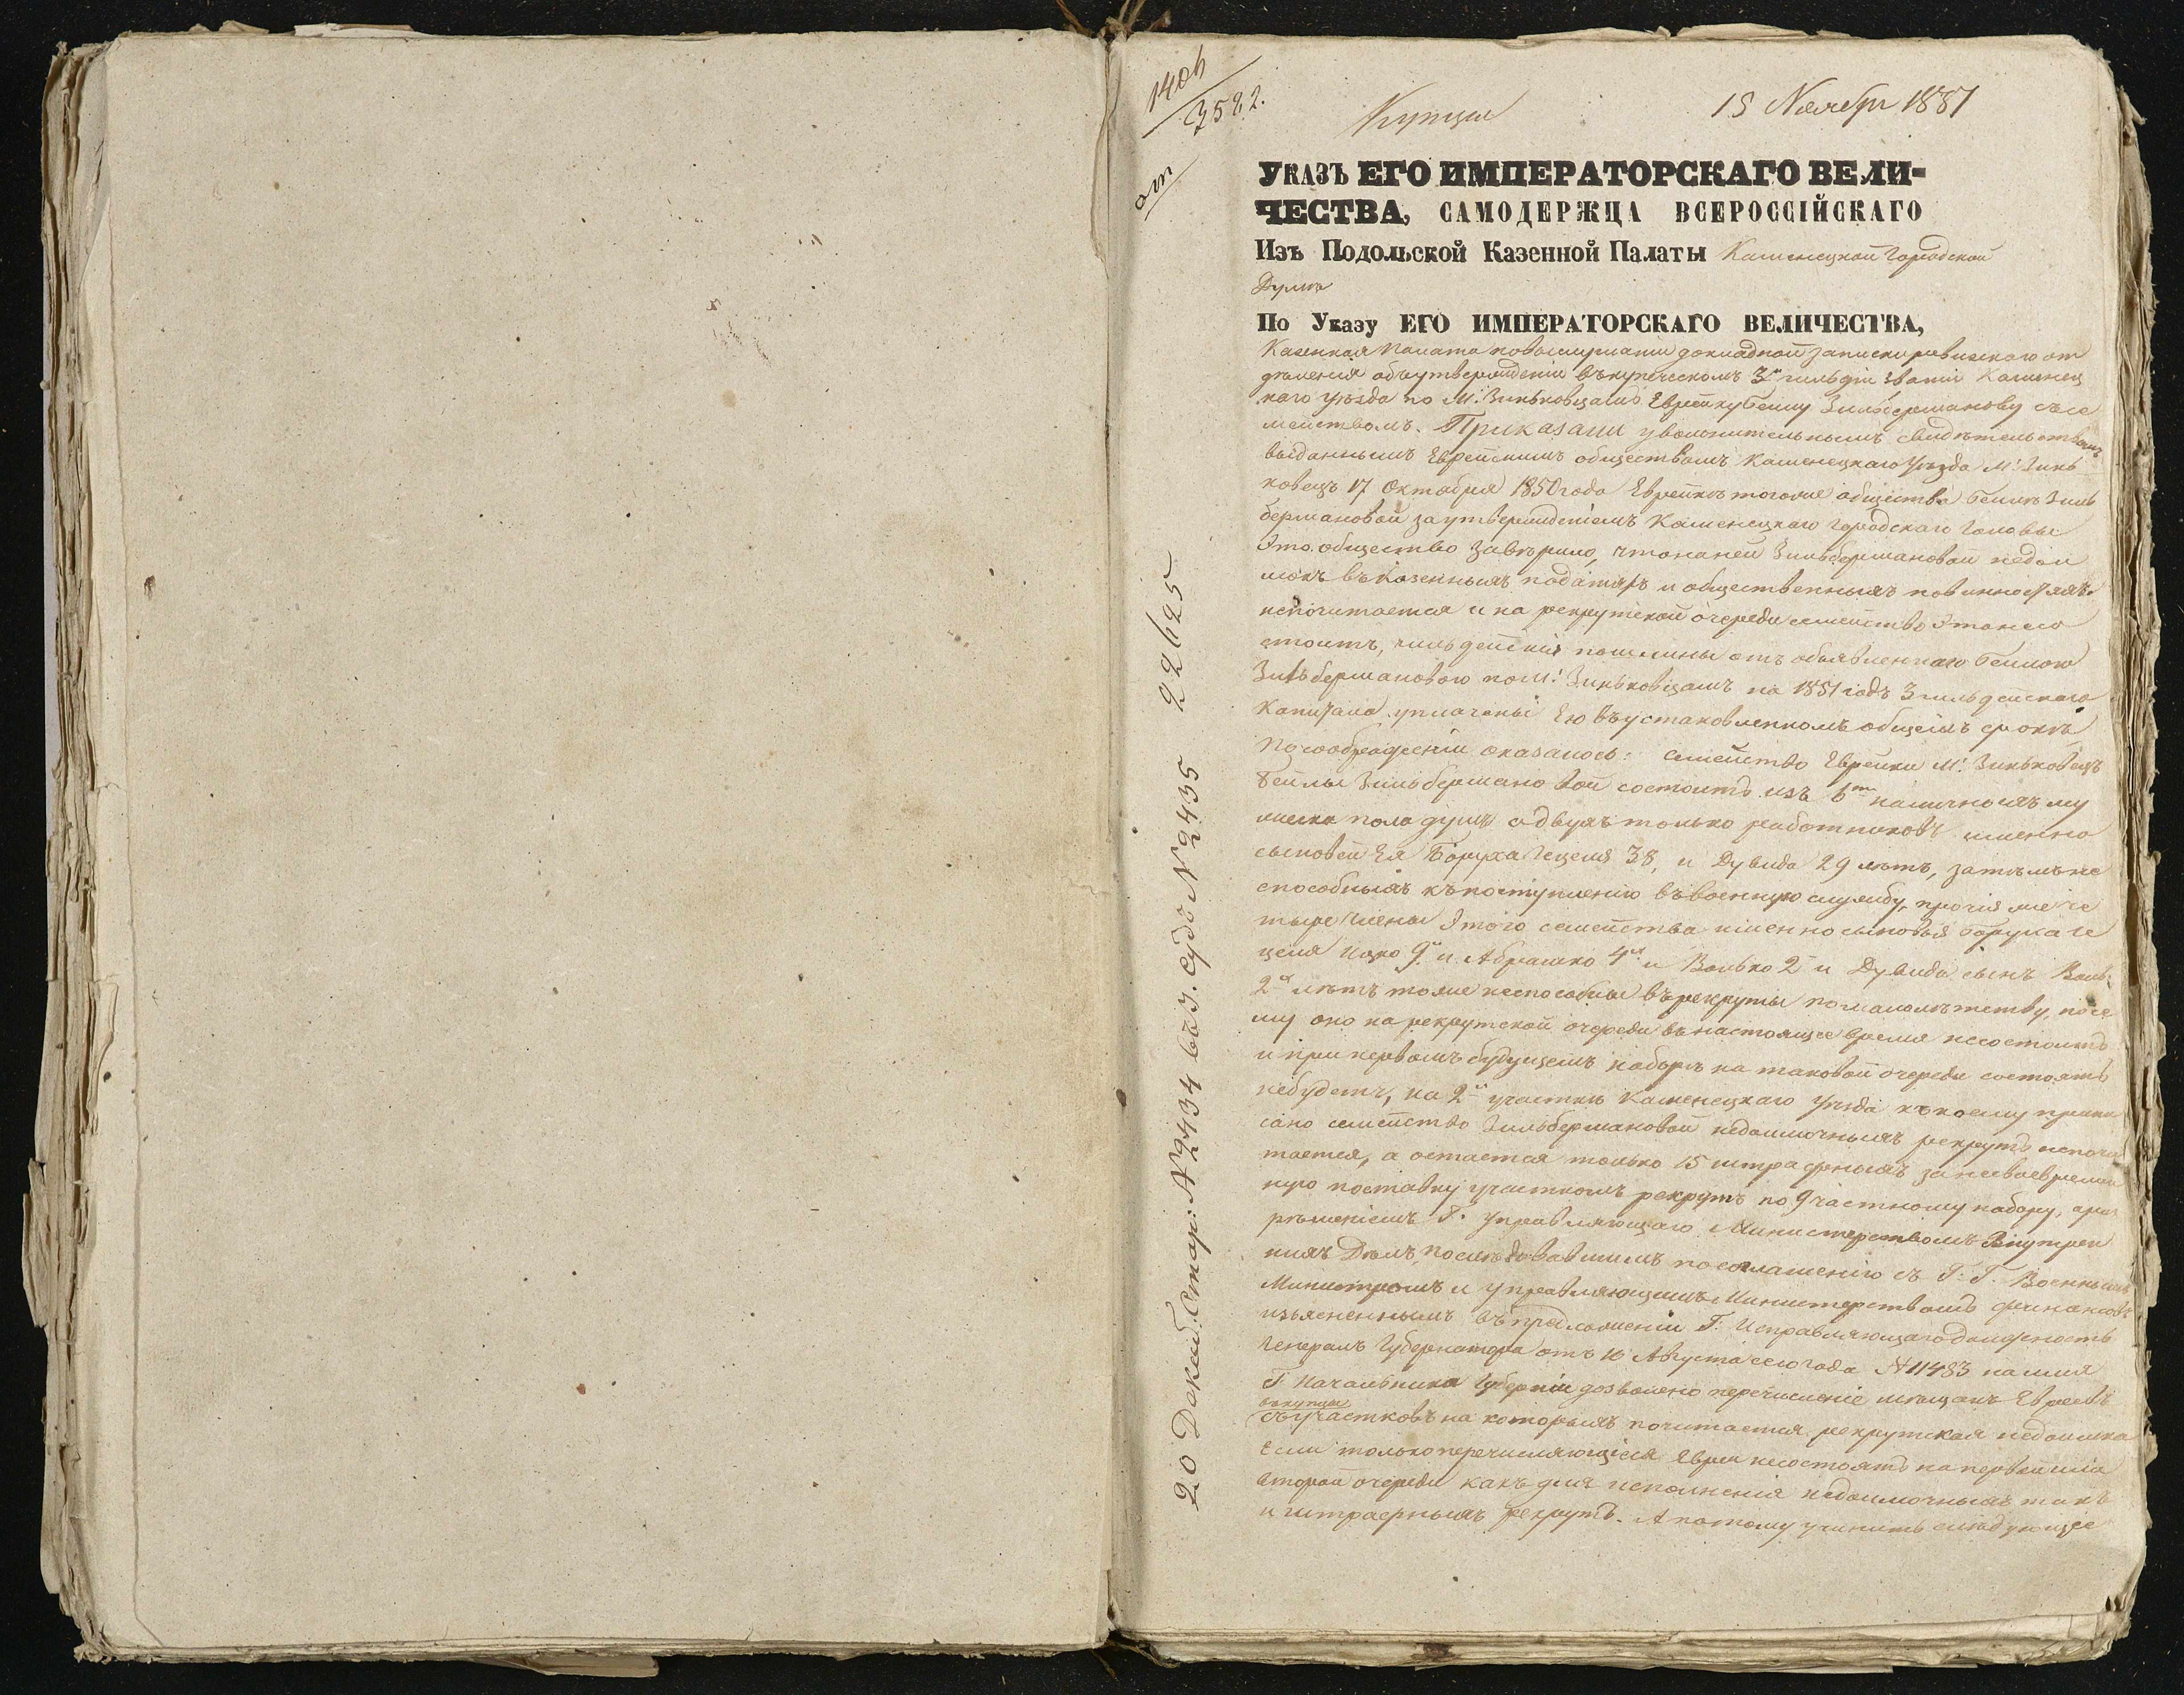 140
3582.
от
Купцы
15 Ноября 1851
УКАЗЪ ЕГО ИМПЕРАТОРСКАГО ВЕЛИ-
ЧЕСТВА, САМОДЕРЖЦА ВСЕРОССІЙСКАГО
Изъ Подольской Казенной Палаты Каменецкой Городской
Думѣ
По Указу ЕГО ИМПЕРАТОРСКАГО ВЕЛИЧЕСТВА,
Казенная Палата по выслушаніи докладной записки ревизскаго от
дѣленія объ утвержденіи въ купеческомъ 3й гильдіи званіи Каменец
каго уѣзда по М: Зиньковцамъ Еврейку Бейлу Зильберманову съ се
мействомъ. Приказали увольнительнымъ свидѣтельствомъ
выданнымъ Еврейскимъ обществомъ Каменецкаго Уѣзда М: Зинь
ковецъ 17 Октября 1850 года Еврейкѣ тогоже общества Бейлѣ Зиль
бермановой за утвержденіемъ Каменецкаго Городскаго Головы
Это общество завѣрило, что на ней Зильбермановой недои
мокъ въ Казенныхъ податяхъ и общественныхъ повинностяхъ
непочитается и на рекрутской очереди семейство это не со
стоитъ, гильдейскія пошлины отъ объявленнаго Бейлою
Зильбермановою по М: Зиньковцамъ на 1851 годъ 3 гильдейскаго
Капитала уплачены Ею въ установленномъ общемъ срокѣ,
По соображеніи оказалось: семейство Еврейки М: Зиньковецъ
Бейлы Зильбермановой состоитъ изъ 6ти наличныхъ му
жеска пола душъ и двухъ только работниковъ именно
сыновей Ея Боруха Гецеля 38, и Дувида 29 лѣтъ, затѣмъ не
способныхъ къ поступленію въ военную службу, прочія же че
тыре члены этого семейства именно сыновья Боруха Ге
целя Ицко 9 и Абрашко 4 и Волько 2 и Дувида сынъ Воль
2 лѣтъ тоже неспособны въ рекруты по малолѣтству, посе
му оно на рекрутской очереди въ настоящее время несостоитъ
и при первомъ будущемъ наборѣ на таковой очереди состоять
небудетъ, на 2м участкѣ Каменецкаго Уѣзда къ коему припи
сано семейство Зильбермановой недоимочныхъ рекрутъ непочи
тается, а остается только 15 штрафныхъ за несвоевремен
ную поставку участкомъ рекрутъ по 9 частному набору, а раз
рѣшеніемъ Г. Управляющаго Министерствомъ Внутрен
нихъ Дѣлъ, послѣдовавшимъ по соглашенію съ Г: Г. Военнымъ
Министромъ и Управляющимъ Министерствомъ Финансовъ
изъясненнымъ въ предложеніи Г. Исправляющаго должность
Генералъ Губернатора отъ 16 Августа сего года N 11483 на имя
Г. Начальника Губерніи дозволено перечисленіе мѣщанъ Евреевъ
въ купцы
съ участковъ на которыхъ почитается рекрутская недоимка
если только перечисляющіеся Евреи несостоятъ на первой или
второй очереди какъ для исполненія недоимочныхъ такъ
и штрафныхъ рекрутъ. А потому учинить слѣдующее
20 Декаб: Стар: N 2434 въ г. судъ N 2435